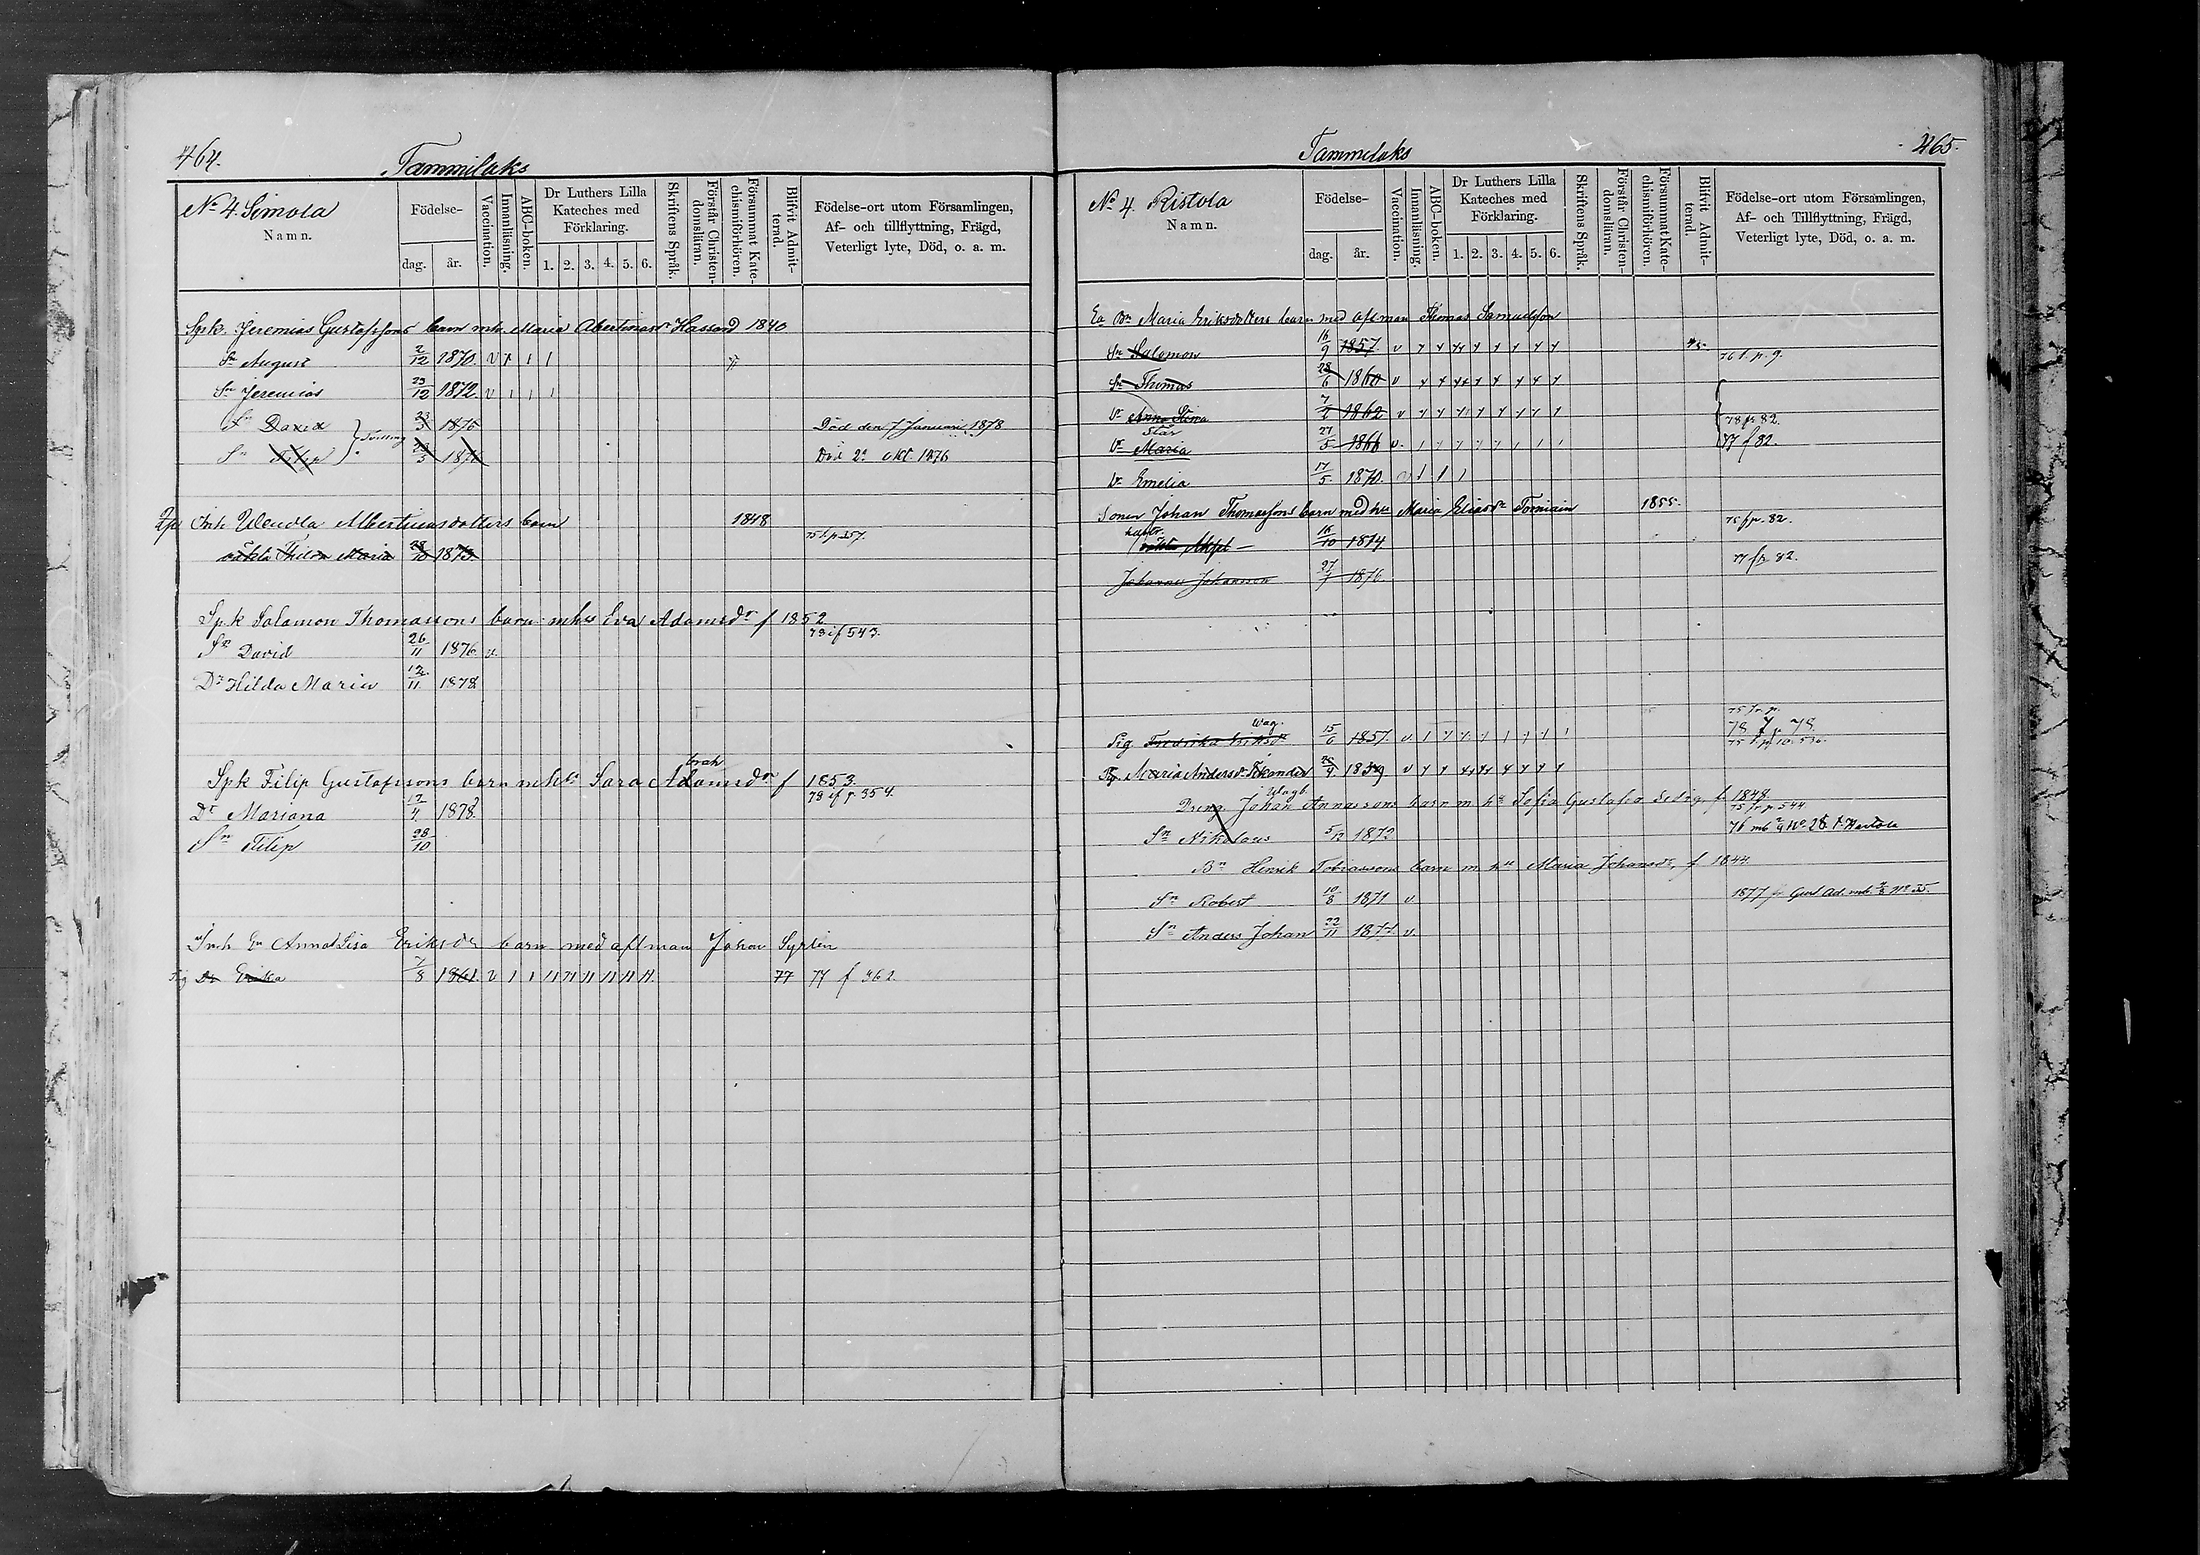 464.
Tammilaks
No 4. Simola
Namn.
Födelse-
dag. år.
Vaccination.
Innanläsning.
ABC-boken.
Dr Luthers Lilla Kateches med Förklaring.
1. 2. 3. 4. 5. 6.
Skriftens Språk.
Förstår Christen-domsläran.
Försummat Kate-chismiförhören.
Blifvit Admit-terad.
Födelse-ort utom Församlingen,
Af- och tillflyttning, Frägd,
Veterligt lyte, Död, o. a. m.
Spk. Jeremias Gustafssons barn mh. Maria Albertinasdr Hassand 1840
Sn August 2/12 1870. v
Sn Jeremias 23/12 1872. v
Sn David 23/3 1876 Död den 7 Januari 1878
Tvilling
Sn Filip 23/3 1876 Död 2 okt. 1876
Inh Wendla Albertinasdotters barn 1848
oäkta Thilda Maria 28/10 1873. 75 t. p 357.
Spk Salomon Thomassons barn mhu Eva Adamsdr f 1852
78 if 543.
Sn David 26/11 1876 v.
Dr Hilda Maria 12/11 1878
Spk Filip Gustafssons barn mhu Sara Adamsdr f 1853.
78 if p. 354.
Dr Mariana 17/4 1878.
Sn Filip 28/10
Inh En Anna Lisa Eriksdr barn med aflman Johan Syrlin
Pig Dr Erika 7/8 1861. v 77 77 f 462.
465.
Tammilaks
No 4. Ristola
Namn.
Födelse-
dag. år.
Vaccination.
Innanläsning.
ABC-boken.
Dr Luthers Lilla Kateches med Förklaring.
1. 2. 3. 4. 5. 6.
Skriftens Språk.
Förstår Christen-domsläran.
Försummat Kate-chismiförhören.
Blifvit Admit-terad.
Födelse-ort utom Församlingen,
Af- och Tillflyttning, Frägd,
Veterligt lyte, Död, o. a. m.
Ea Bn Maria Eriksdotters barn med aflman Thomas Samuelson
Sn Salomon 16/9 1857 v 76 t. p. 9.
Sn Thomas 28/6 1860 v
Dr Anna Stina 7/2 1862 v 78 fp 82.
Dr Maria 27/5 1866 v. 77 f 82.
Dr Emelia 17/5 1870.
Sonen Johan Thomassons barn med hu Maria Eliasdr Torniain 1855.
75 fp. 82.
Axel 16/10 1874
Johannes Johansson 27/7 1876 77 fp 82.
Pig Fredrika Eriksdr 15/6 1857. v
Pig. Maria Andersdr Tikander v
Dreng Johan Annassons barn m hu Sofia Gustafva f. 1848.
75 fr. p. 544
Sn Nikolaus 5/12 1872
Bn Henrik Tobiassons barn m hu Maria Johansdr, f 1844.
Sn Robert 10/8 1871 v.
Sn Anders Johan 22/11 1877. v.